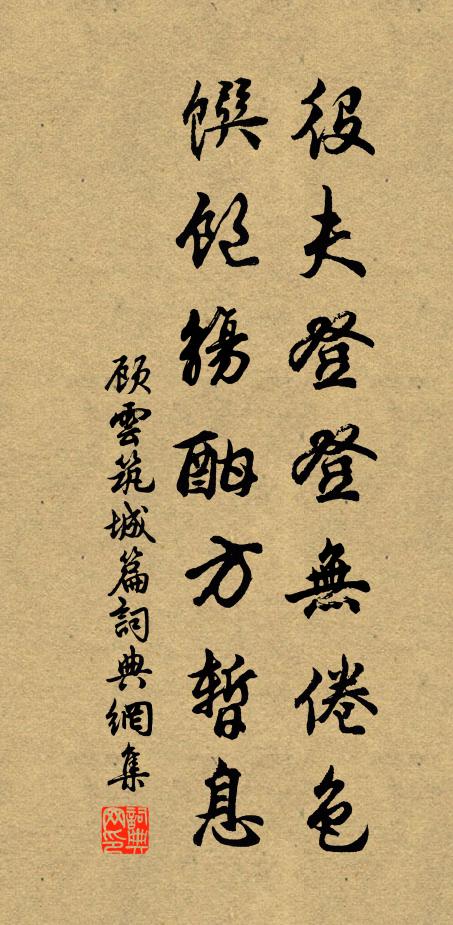 役夫登登無倦色
饌飽觴酣方暫息
顧雲筑城篇詞典網集
詞典網印